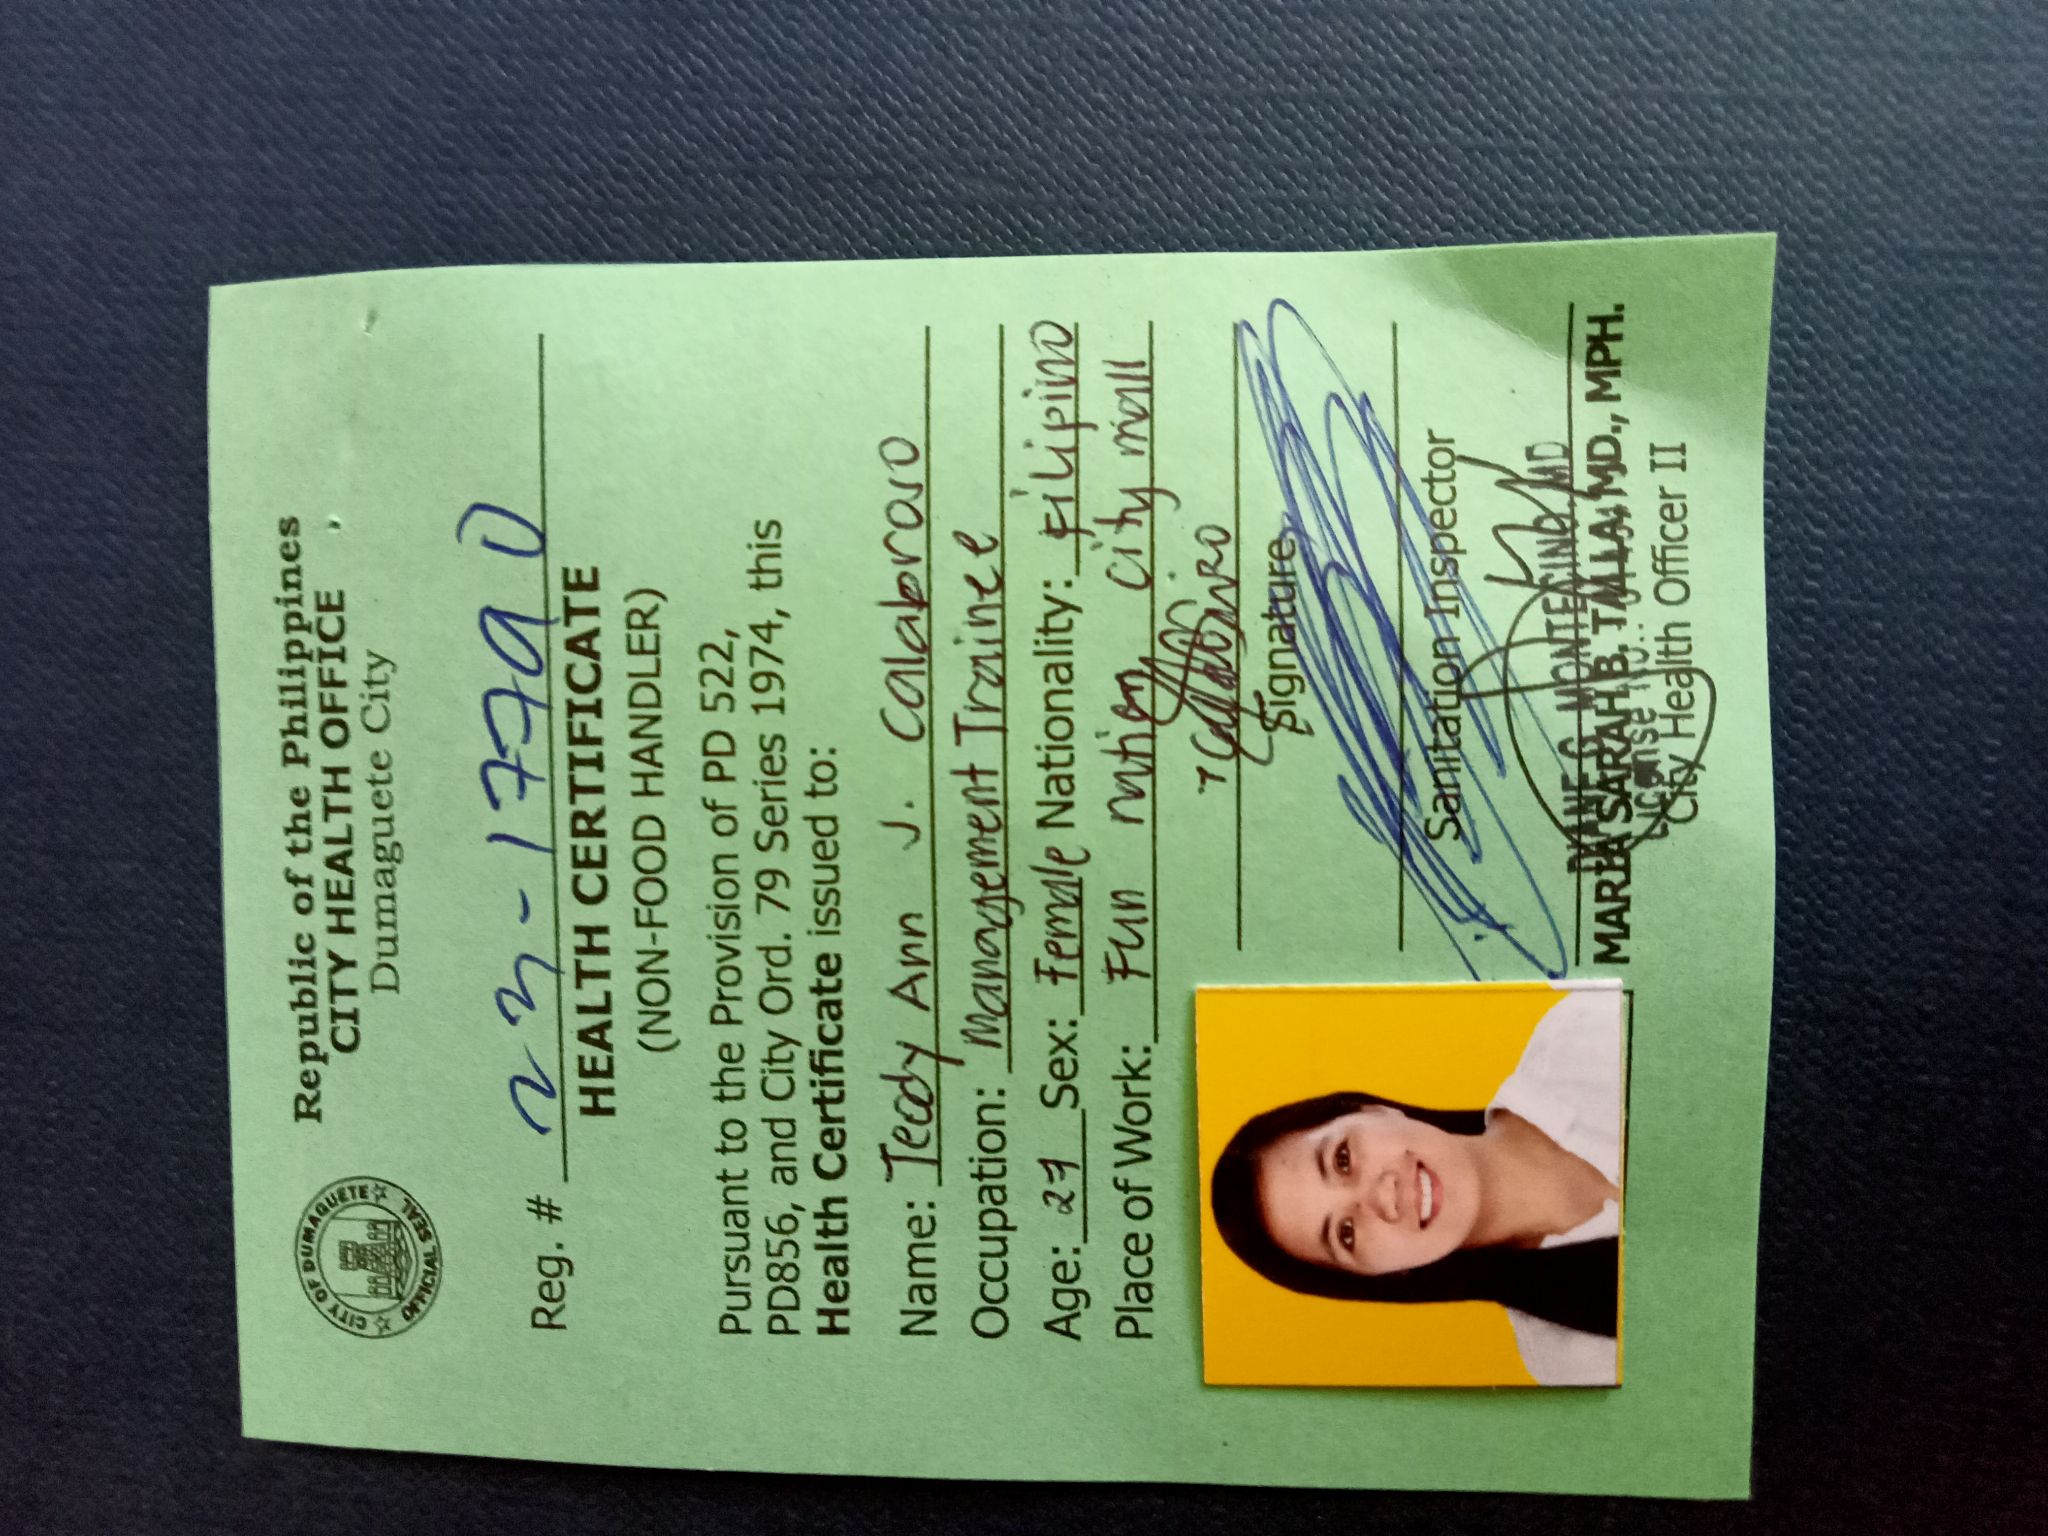 CITY OF DUMAGUETE
OFFICIAL SEAL
Republic of the Philippines
CITY HEALTH OFFICE
Dumaguete City
Reg. # 23-17790
HEALTH CERTIFICATE
(NON-FOOD HANDLER)
Pursuant to the Provision of PD 522,
PD856, and City Ord. 79 Series 1974, this
Health Certificate issued to:
Name: Tecdy Ann J. Calabroso
Occupation: Management Trainee
Age: 27 Sex: Female Nationality: Filipino
Place of Work: Fun nation city mall
Signature
Sanitation Inspector
MARIA SARAH B. TALLA, MD., MPH.
City Health Officer II